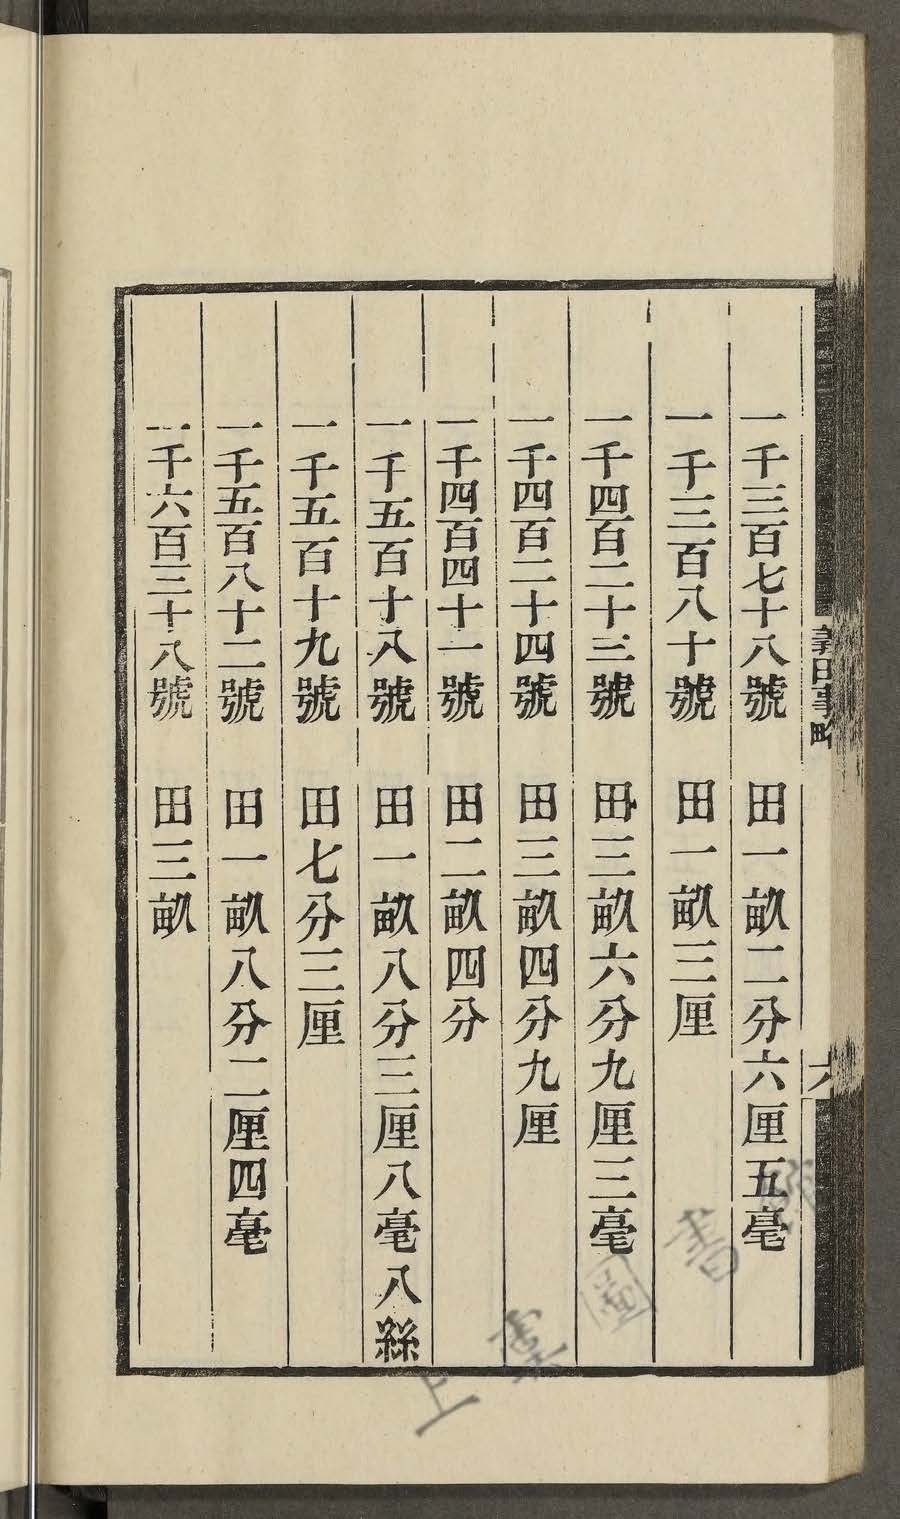 義田事略
六
一千三百七十八號　田一畝二分六厘五毫
一千三百八十號　田一畝三厘
一千四百二十三號　田三畝六分九厘三毫
一千四百二十四號　田三畝四分九厘
一千四百四十一號　田二畝四分
一千五百十八號　田一畝八分三厘八毫八絲
一千五百十九號　田七分三厘
一千五百八十二號　田一畝八分二厘四毫
一千六百三十八號　田三畝
上虞圖書館